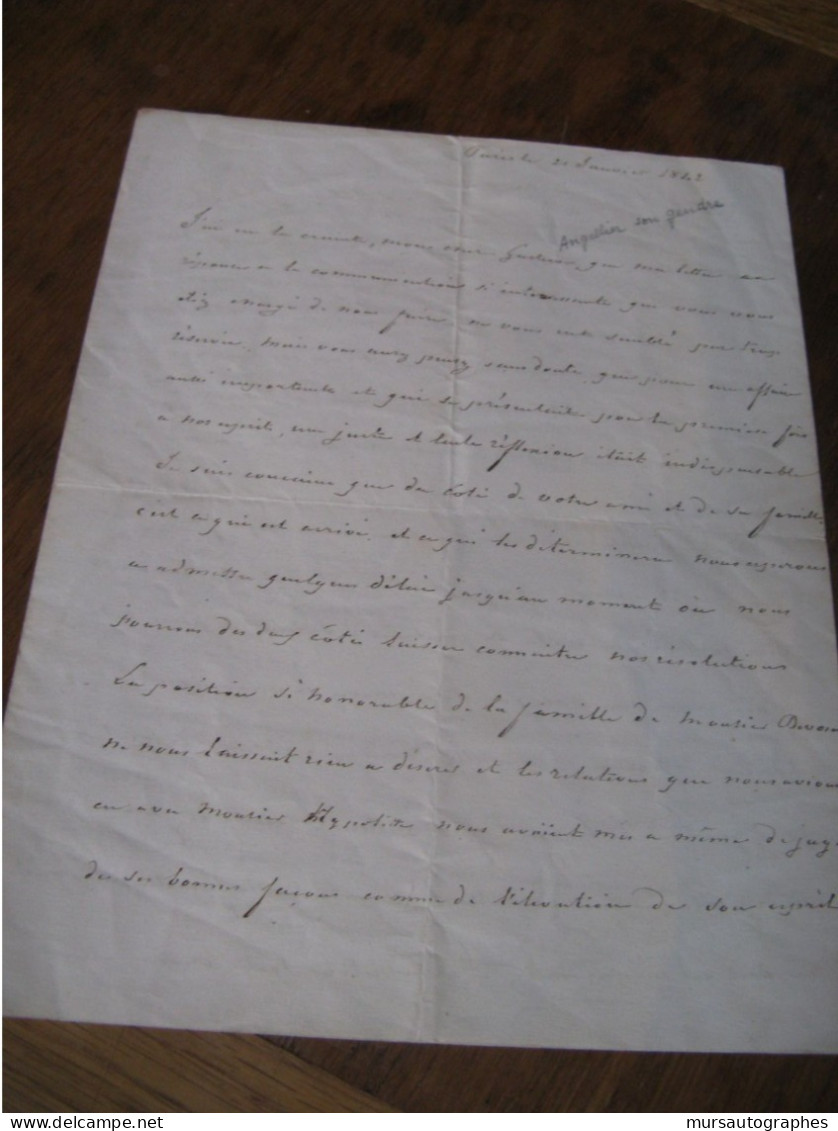 Paris le 21 Janvier 1842
Angellier son gendre
J'ai eu la crainte, mon cher Gustave, que ma lettre en
réponse a la communication si intéressante que vous vous
étiez chargé de nous faire ne vous eut semblé par trop
réservée, mais vous aurez pensez sans doute que pour une affaire
aussi importante et qui se présentait pour la premiere fois
a nos esprits, une juste et lente réflexion était indispensable
Je suis convaincu que du coté de votre ami et de sa famille
c'est ce qui est arrivé, et ce qui les déterminera nous esperons
a admettre quelques délais jusqu'au moment où nous
pourrons des deux cotés laisser connaitre nos résolutions
La position si honorable de la famille de Monsieur
ne nous laissait rien a désirer et les relations que nous avions
eu avec Monsieur Hypolite nous avaient mis a même de juger
de ses bonnes façons comme de l'élévation de son esprit
mursautographes
delcampe.net